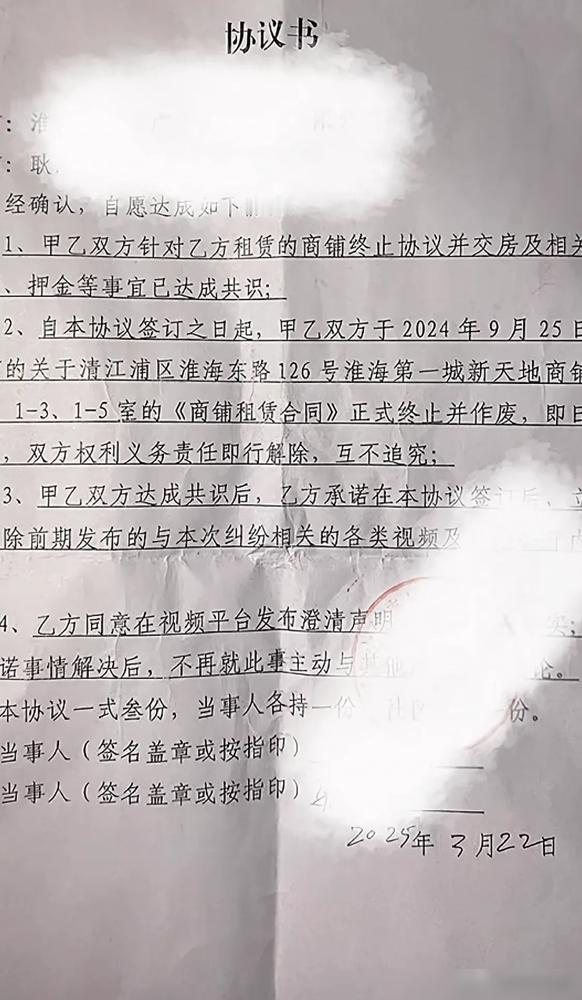 协议书
：淮
：耿
经确认，自愿达成如下
1、甲乙双方针对乙方租赁的商铺终止协议并交房及相关
、押金等事宜已达成共识；
2、自本协议签订之日起，甲乙双方于2024年9月25日
的关于清江浦区淮海东路126号淮海第一城新天地商铺
1-3、1-5室的《商铺租赁合同》正式终止并作废，即日
，双方权利义务责任即行解除，互不追究；
3、甲乙双方达成共识后，乙方承诺在本协议签订后，立
除前期发布的与本次纠纷相关的各类视频及
4、乙方同意在视频平台发布澄清声明 实；
诺事情解决后，不再就此事主动与其他 论。
本协议一式叁份，当事人各持一份 社区 份。
当事人（签名盖章或按指印）
当事人（签名盖章或按指印）
2025年3月22日